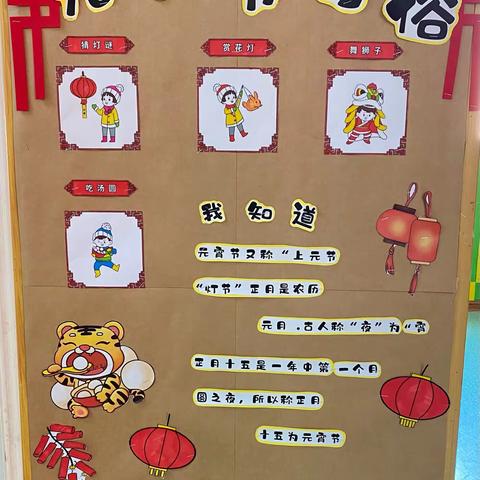 俗
猜灯谜 赏花灯 舞狮子
吃汤圆
我知道
元宵节又称“上元节
“灯节”正月是农历
元月.古人称“夜”为“宵
正月十五是一年中第一个月
圆之夜，所以称正月
十五为元宵节